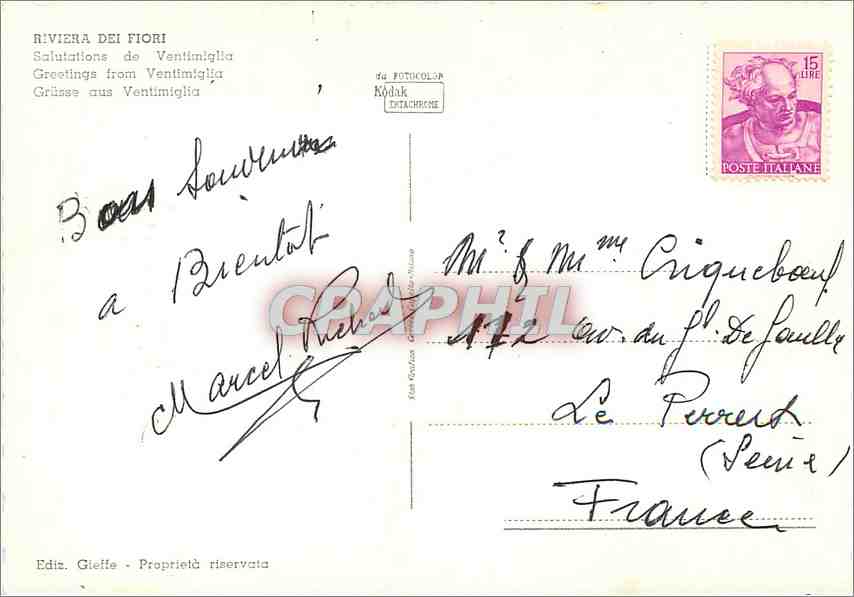 RIVIERA DEI FIORI
Salutations de Ventimiglia
Greetings from Ventimiglia
Grüsse aus Ventimiglia
da FOTOCOLOR
Kodak
EKTACHROME
15
LIRE
POSTE ITALIANE
Bons Souvenirs
a Bientôt
Marcel Richard
CPAPHIL
Mr & Mme Criquebœuf
172 av. du Gl. De Gaulle
Le Perreux
(Seine)
France
Ediz. Gieffe - Proprietà riservata